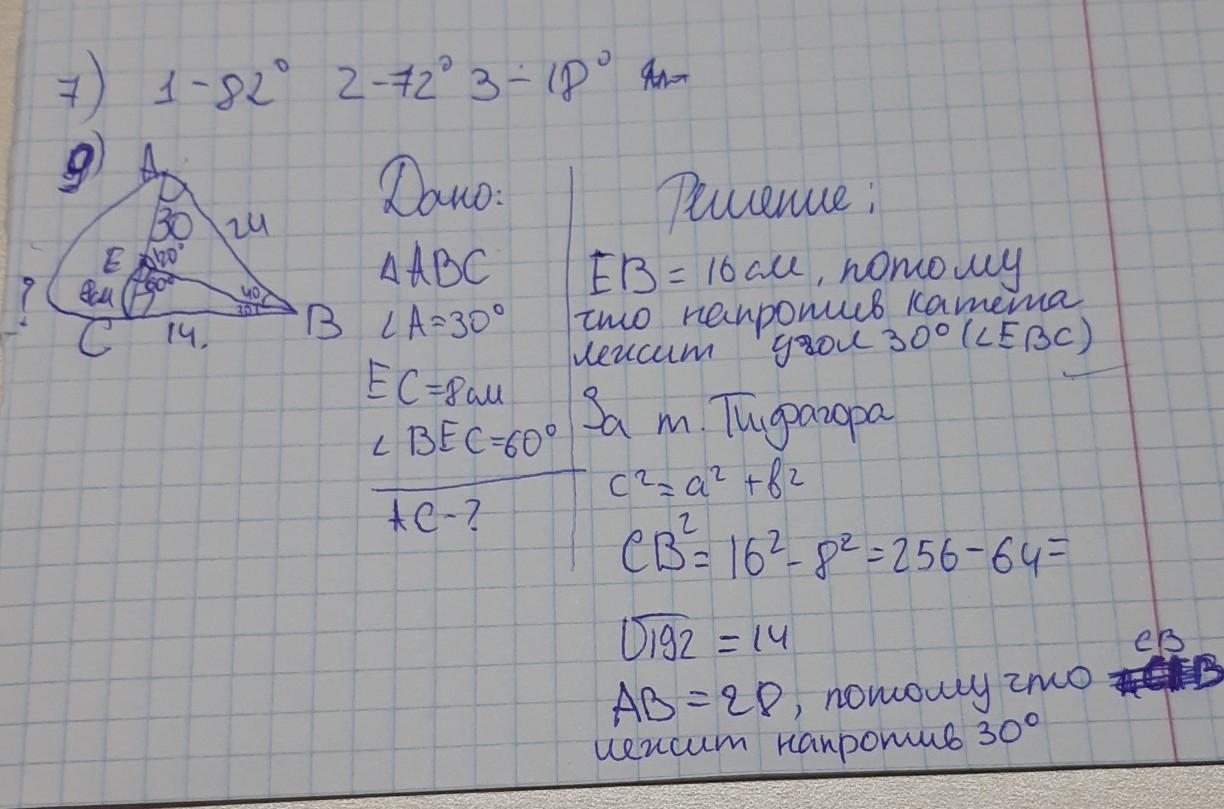 7) 1-82° 2-72° 3-18°
9)
A
30
24
E
120°
60°
8см
40
30
?
C
14.
B
Дано:
ΔABC
∠A=30°
EC=8см
∠BEC=60°
AC-?
Решение:
EB=16см, потому
что напротив катета
лежит угол 30°(∠EBC)
За т. Пифагора
c²=a²+b²
CB²=16²-8²=256-64=
√192=14
AB=28, потому что CB
лежит напротив 30°